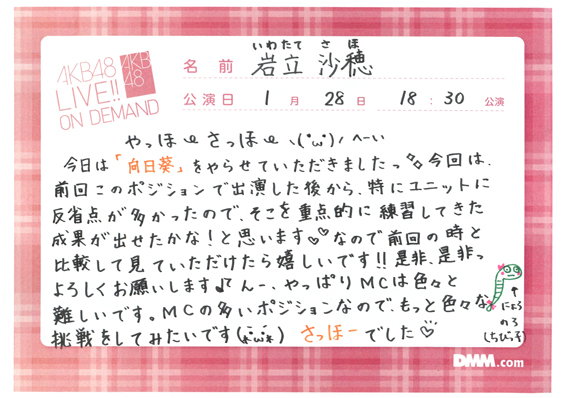 AKB48
LIVE!!
ON DEMAND
AKB
48
いわたて さほ
名前 岩立 沙穂
公演日 1月 28日 18:30 公演
やっほー さっほー ヽ(・ω・)ノ へーい
今日は「向日葵」をやらせていただきましたっ 今回は、
前回このポジションで出演した後から、特にユニットに
反省点が多かったので、そこを重点的に練習してきた
成果が出せたかな!と思います♡♡なので前回の時と
比較して見ていただけたら嬉しいです!!是非、是非っ
よろしくお願いします♪んー、やっぱりMCは色々と
難しいです。MCの多いポジションなので、もっと色々な
挑戦をしてみたいです(*・ω・*) さっほーでした♡
↑
にょろ
のろ
(ちびっ子)
DMM.com